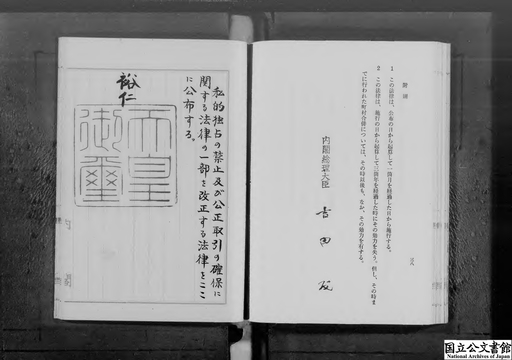 附則
1 この法律は、公布の日から起算して一箇月を経過した日から施行する。
2 この法律は、施行の日から起算して三箇年を経過した時にその効力を失う。但し、その時ま
でに行われた町村合併については、その時以後も、なお、その効力を有する。
内閣総理大臣 吉田茂
私的独占の禁止及び公正取引の確保に
関する法律の一部を改正する法律をここ
に公布する。
裕仁
天皇
御璽
国立公文書館
National Archives of Japan